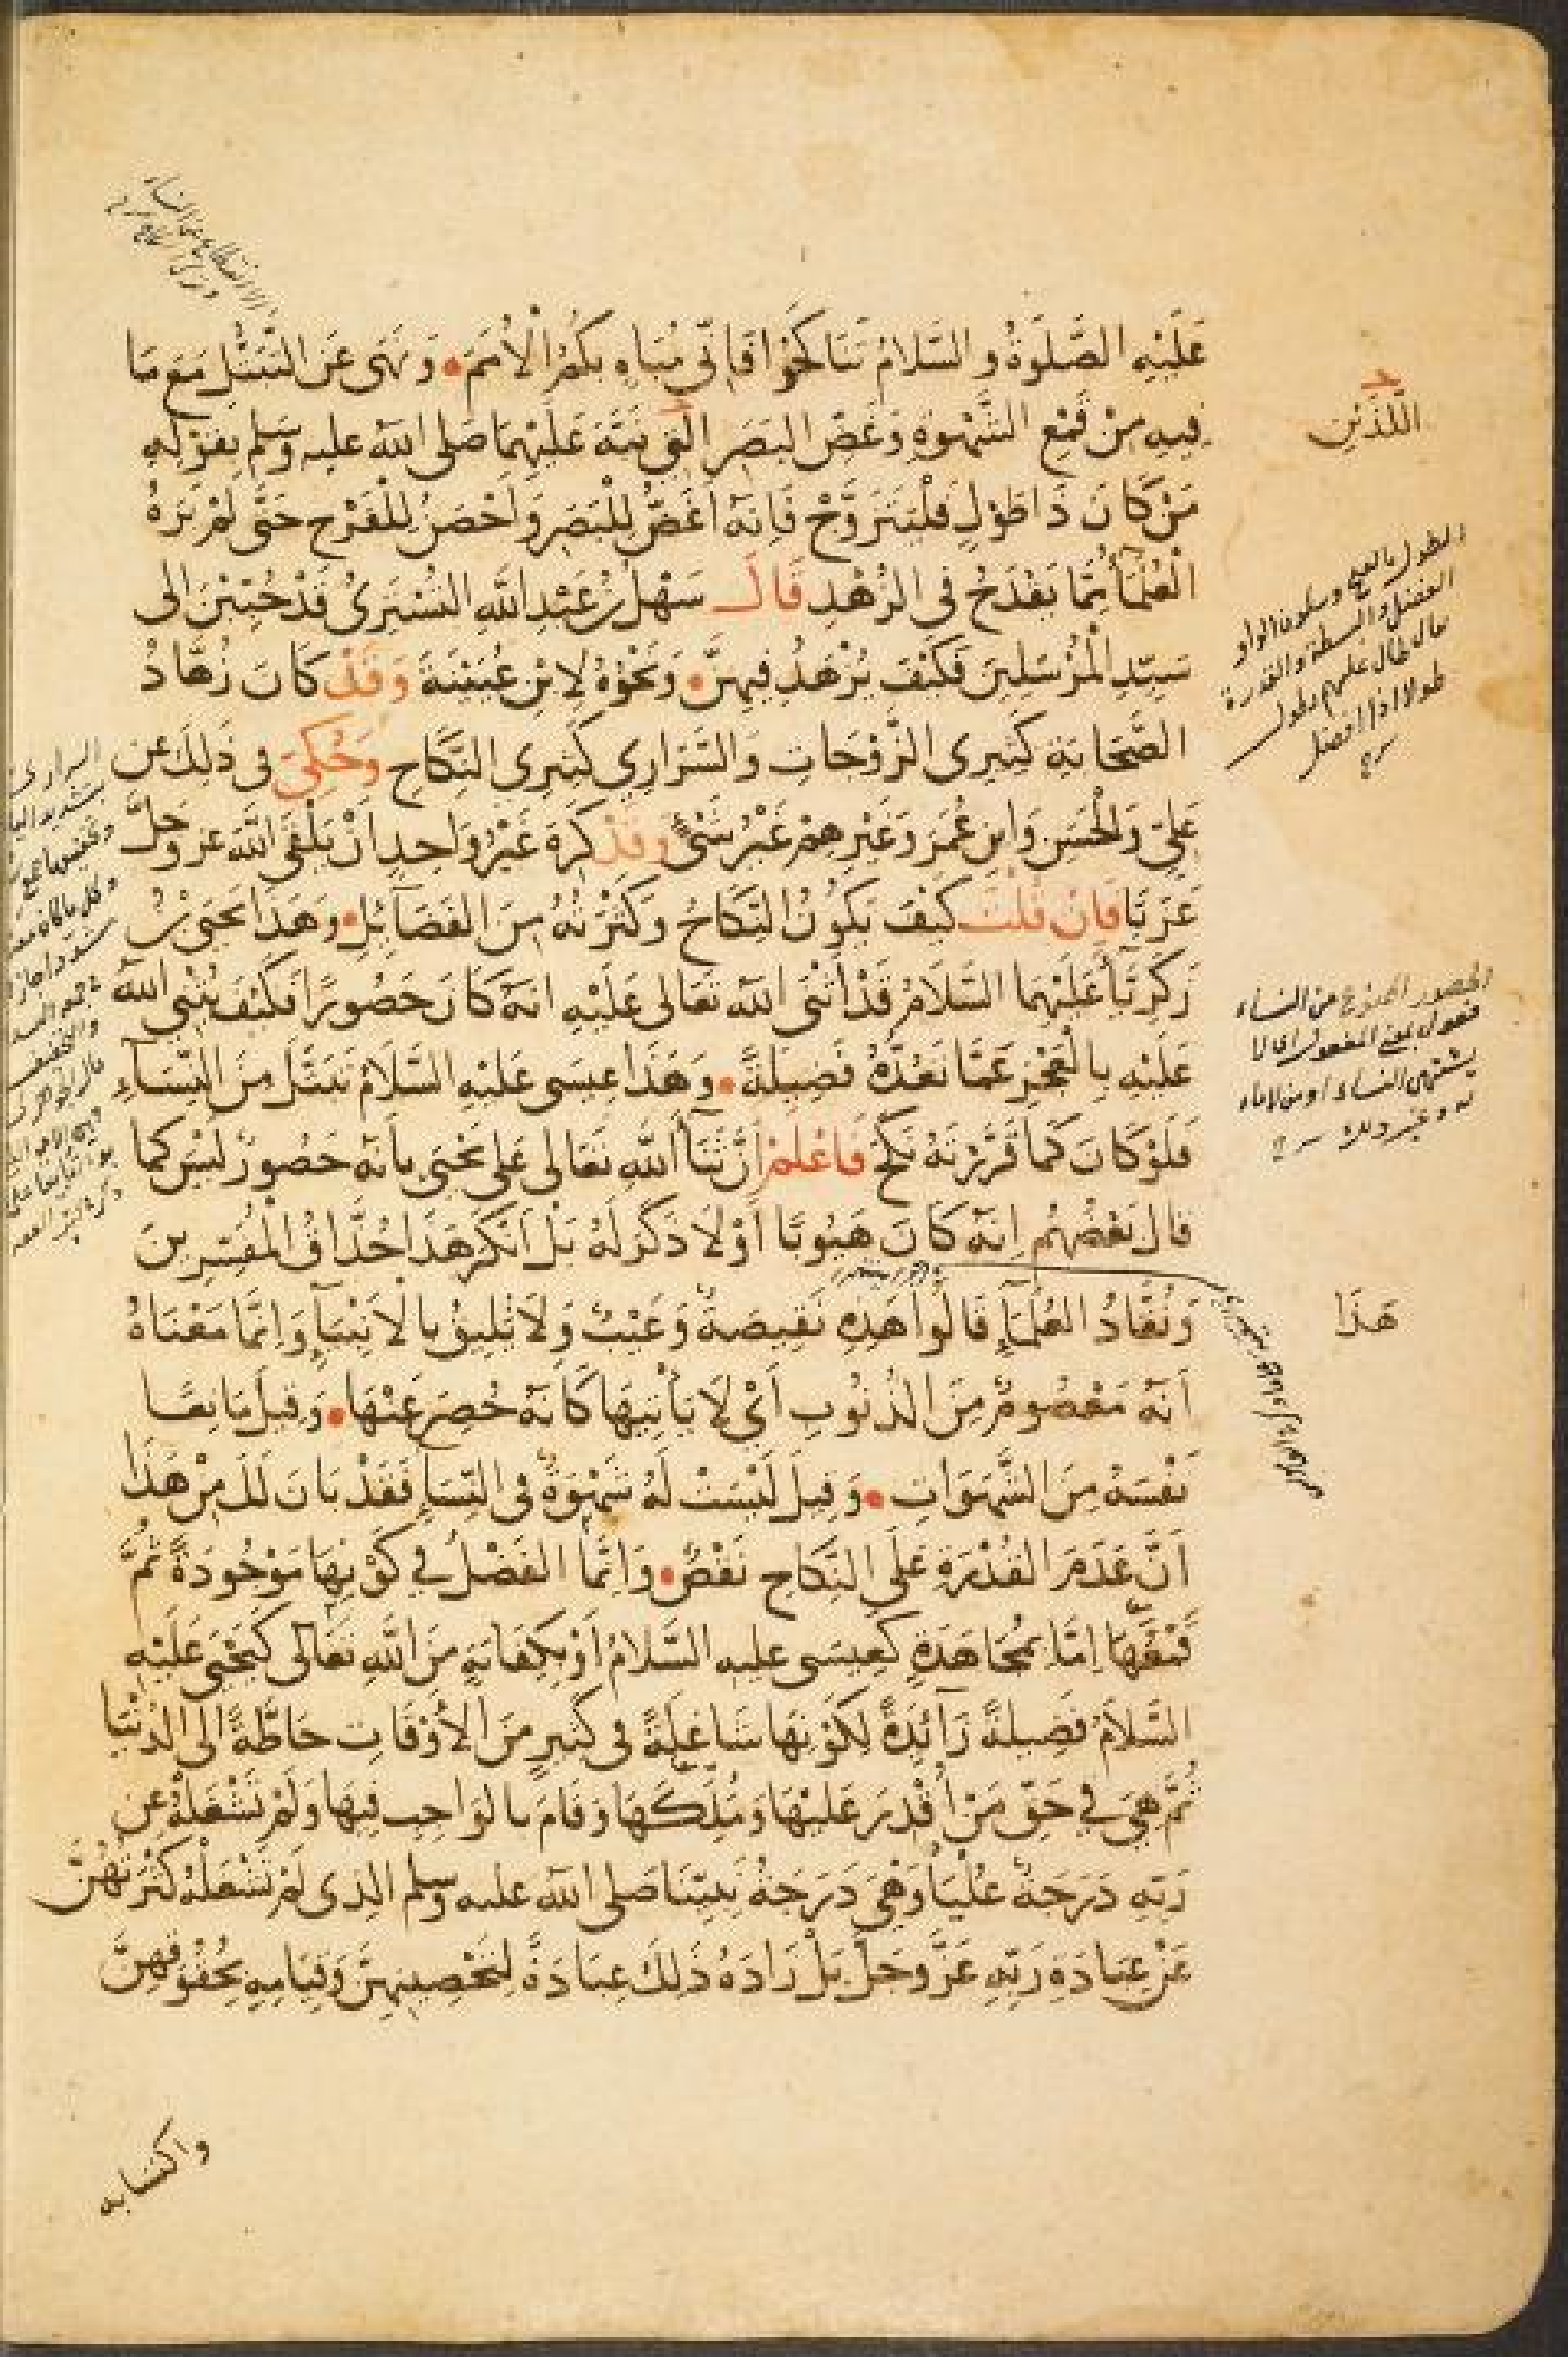 عَلَيْهِ الصَّلَوةُ وَالسَّلَامُ تَنَاكَحُوْا فَاِنّى مُبَاهٍ بِكُمُ الْاُمَمَ وَنَهَى عَنِ التَّبَتُّلِ مَعَ مَا
فِيهِ مِنْ قَمْعِ الشَّهْوَةِ وَغَضِّ الْبَصَرِ الَّتِى نَبَّهَ عَلَيْهِمَا صلى الله عليه وسلم بِقَوْلِهِ
مَنْ كَانَ ذَا طَوْلٍ فَلْيَتَزَوَّجْ فَاِنَّهُ اَغَضُّ لِلْبَصَرِ وَاَحْصَنُ لِلْفَرْجِ حَتَّى لَمْ يَرَهُ
الْعُلَمَآءُ مِمَّا يَقْدَحُ فِى الزُّهْدِ قَالَ سَهْلُ بْنُ عَبْدِ اللهِ التُّسْتَرِىُّ قَدْ حُبِّبْنَ اِلى
سَيِّدِ الْمُرْسَلِينَ فَكَيْفَ يُزْهَدُ فِيهِنَّ وَنَحْوُهُ لِابْنِ عُيَيْنَةَ وَقَدْ كَانَ زُهَّادُ
الصَّحَابَةِ كَثِيرِى الزَّوْجَاتِ وَالسَّرَارِي كَثِيرِى النِّكَاحِ وَحُكِىَ فى ذَلِكَ عن
عَلِىٍّ وَالْحَسَنِ وَابْنِ عُمَرَ وَغَيْرِهِمْ غَيْرُ شَىْءٍ وَقَدْ كَرِهَ غَيْرُ وَاحِدٍ اَنْ يَلْقَى الله عز وجلَّ
عَزَبًا فَاِنْ قُلْتَ كَيْفَ يَكُونُ النِّكَاحُ وَكَثْرَتُهُ مِنَ الْفَضَآئِلِ وَهَذَا يَحْيَى بْنُ
زَكَرِيَّآءَ عَلَيْهِمَا السَّلَامُ قَدْ اَثْنَى الله تَعَالى عَلَيْهِ اَنَّهُ كَانَ حَصُورًا فَكَيْفَ يُثْنِى الله
عَلَيْهِ بِالْعَجْزِ عَمَّا تَعُدُّهُ فَضِيلَةً وَهَذَا عِيسَى عَلَيْهِ السَّلَامُ تَبَتَّلَ مِنَ النِّسَآءِ
فَلَوْ كَانَ كَمَا قَرَّرْتَهُ نَكَحَ فَاعْلَمْ اَنَّ ثَنَآءَ اللهِ تَعَالى عَلى يَحْيَى بِاَنَّهُ حَصُورٌ لَيْسَ كما
قال بَعْضُهُمْ اِنَّهُ كَانَ هَيُوبًا اَوْ لَا ذَكَرَ لَهُ بَلْ اَنْكَرَ هَذَا حُذَّاقُ الْمُفَسِّرِينَ
وَنُقَّادُ الْعُلَمَآءِ قَالُوا هَذِهِ نَقِيصَةٌ وَعَيْبٌ وَلَا تَلِيقُ بِالْاَنْبِيَآءِ وَاِنَّمَا مَعْنَاهُ
اَنَّهُ مَعْصُومٌ مِنَ الذُّنُوبِ اَىْ لَا يَأْتِيهَا كَاَنَّهُ حُصِرَ عَنْهَا وَقِيلَ مَانِعًا
نَفْسَهُ مِنَ الشَّهَوَاتِ وَقِيلَ لَيْسَتْ لَهُ شَهْوَةٌ فى النِّسَآءِ فَقَدْ بَانَ لَكَ مِنْ هَذَا
اَنَّ عَدَمَ الْقُدْرَةِ عَلَى النِّكَاحِ نَقْصٌ وَاِنَّمَا الْفَضْلُ فِى كَوْنِهَا مَوْجُودَةً ثُمَّ
قَمْعُهَا اِمَّا بِمُجَاهَدَةٍ كَعِيسَى عليه السَّلَامُ اَوْ بِكِفَايَةٍ مِنَ اللهِ تَعَالى كَيَحْيَى عَلَيْهِ
السَّلَامُ فَضِيلَةً زَآئِدَةً لِكَوْنِهَا شَاغِلَةً فى كَثِيرٍ مِنَ الْاَوْقَاتِ حَاطَّةً اِلَى الدُّنْيَا
ثُمَّ هِىَ فى حَقِّ مَنْ اُقْدِرَ عَلَيْهَا وَمُلِّكَهَا وَقَامَ بِالْوَاجِبِ فِيهَا وَلَمْ تَشْغَلْهُ عن
رَبِّهِ دَرَجَةٌ عُلْيَا وَهْىَ دَرَجَةُ نَبِيِّنَا صلى الله عليه وسلم الذى لَمْ تَشْغَلْهُ كَثْرَتُهُنَّ
عَنْ عِبَادَةِ رَبِّهِ عَزَّ وَجَلَّ بَلْ زَادَهُ ذَلِكَ عِبَادَةً لِتَحْصِينِهِنَّ وَقِيَامِهِ بِحُقُوقِهِنَّ
واكتسابه
اللَّذَيْنِ
الطول بالفتح وسكون الواو
الفضل والسطة والقدرة
يقال طال عليهم يطول
طولا اذا افضل
الحصور الممنوع من النساء
فعول بمعنى المفعول
يشتهى النساء
هَذَا
الانقطاع عن النساء
وترك النكاح
السرارى
بتشديد الياء